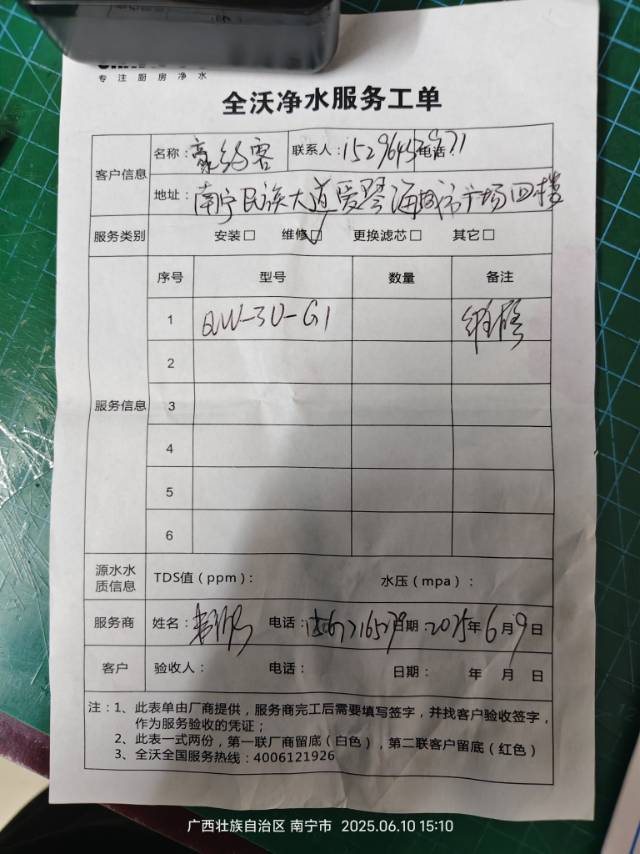 专注厨房净水
全沃净水服务工单
客户信息
名称：豪约客 联系人：电话
地址：南宁民族大道爱琴海城市广场四楼
服务类别 安装□ 维修☑ 更换滤芯□ 其它□
服务信息
序号 型号 数量 备注
1 QW-3U-G1 维修
2
3
4
5
6
源水水质信息 TDS值（ppm）： 水压（mpa）：
服务商 姓名： 电话： 日期：2025年6月9日
客户 验收人： 电话： 日期： 年 月 日
注：1、此表单由厂商提供，服务商完工后需要填写签字，并找客户验收签字，
作为服务验收的凭证；
2、此表一式两份，第一联厂商留底（白色），第二联客户留底（红色）
3、全沃全国服务热线：4006121926
广西壮族自治区 南宁市 2025.06.10 15:10